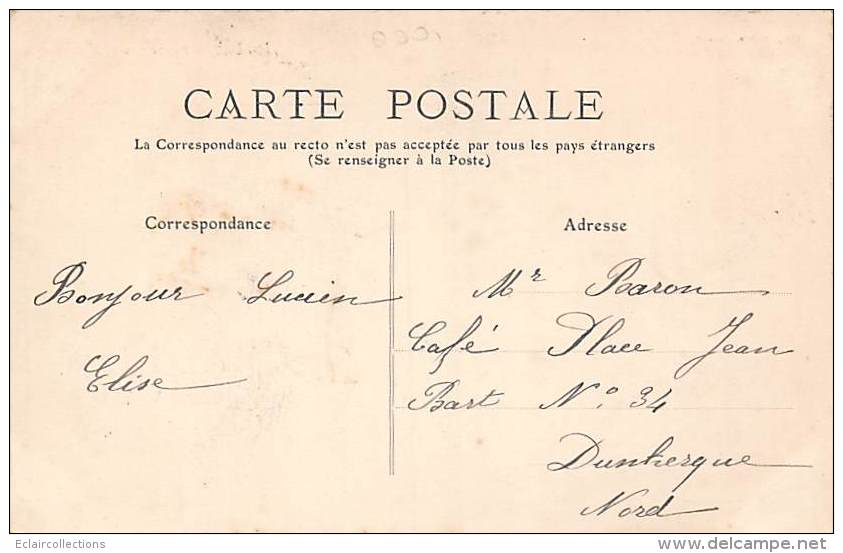 CARTE POSTALE
La Correspondance au recto n'est pas acceptée par tous les pays étrangers
(Se renseigner à la Poste)
Correspondance
Bonjour Lucien
Elise
Adresse
Mr Baron
Café Place Jean
Bart No. 34
Dunkerque
Nord
Eclaircollections
www.delcampe.net